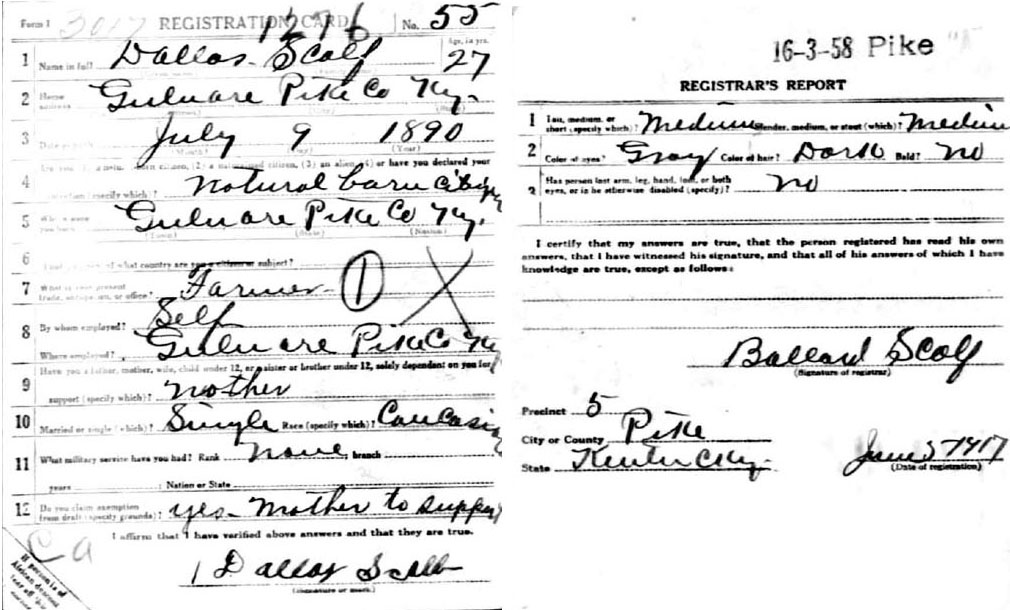 Form 1 3017 REGISTRATION CARD 1276 No. 55
1 Name in full Dallas Scalf Age, in yrs. 27
2 Home address Gulnare Pike Co Ky.
3 Date of birth July 9 1890
(Month) (Day) (Year)
4 born citizen, (2) a naturalized citizen, (3) an alien, (4) or have you declared your
(specify which)? natural barn citizen
5 Where were you born? Gulnare Pike Co Ky.
(Town) (State) (Nation)
6 of what country are you a citizen or subject?
7 What is your present trade, occupation, or office? Farmer 1 X
8 By whom employed? Self
Where employed? Gulnare Pike Co Ky
9 Have you a father, mother, wife, child under 12, or a sister or brother under 12, solely dependent on you for
support (specify which)? Mother
10 Married or single (which)? Single Race (specify which)? Caucasian
11 What military service have you had? Rank None, branch
years ; Nation or State
12 Do you claim exemption from draft (specify grounds)? yes - Mother to support
I affirm that I have verified above answers and that they are true.
Ca
If person is of African descent tear off this corner
Dallas Scalf
(Signature or mark)
16-3-58 Pike "A"
REGISTRAR'S REPORT
1 Tall, medium, or short (specify which)? Medium Slender, medium, or stout (which)? Medium
2 Color of eyes? Gray Color of hair? Dark Bald? No
3 Has person lost arm, leg, hand, foot, or both eyes, or is he otherwise disabled (specify)? No
I certify that my answers are true, that the person registered has read his own
answers, that I have witnessed his signature, and that all of his answers of which I have
knowledge are true, except as follows:
Ballard Scalf
(Signature of registrar)
Precinct 5
City or County Pike
State Kentucky June 5 1917
(Date of registration)